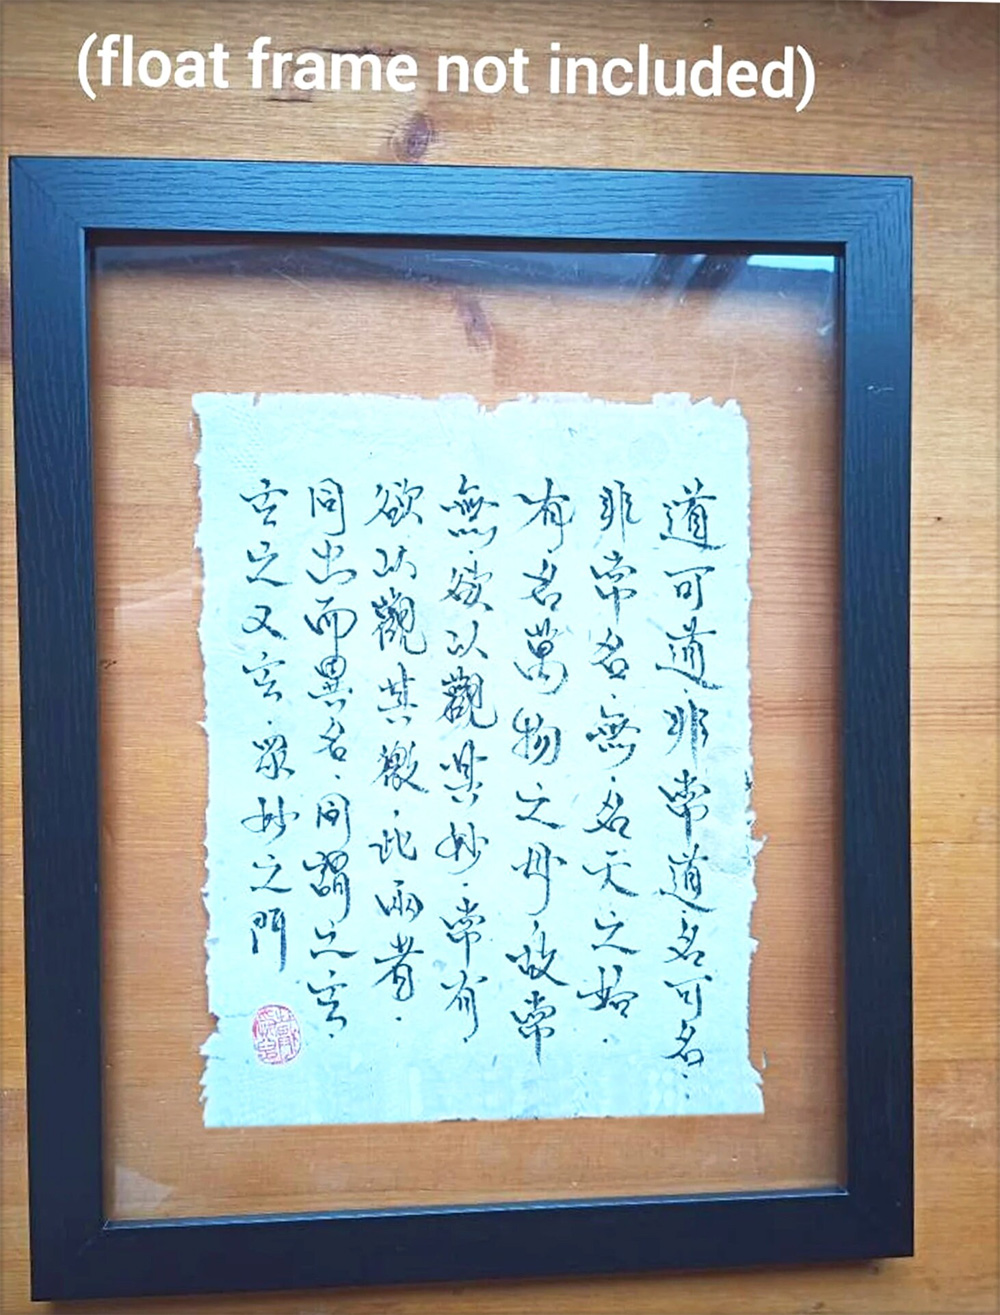 (float frame not included)
道可道.非常道名可名.
非常名.無名天之始.
有名萬物之母.故常
無欲以觀其妙.常有.
欲以觀其徼.此兩者.
同出而異名.同謂之玄.
玄之又玄.眾妙之門